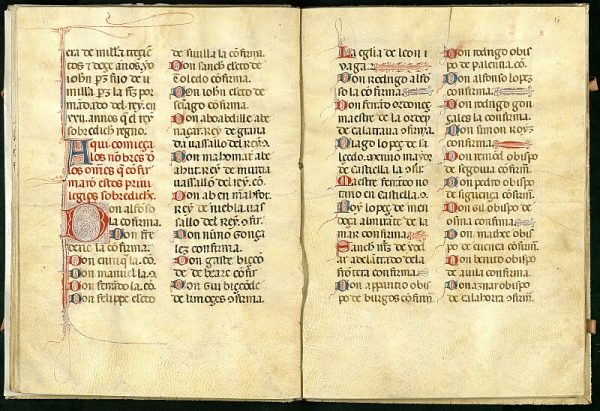 era de mill. ⁊ trezien
tos ⁊ doze años. yo
iohn prz fijo de
milla
mādado del rey. en
xxii. annos que el
sobredicħ regno.
Aqui comieça
los nōbres d
los om̄es que cōfir
maron estos priui
legios sobredichos.
Don alfonso
la cōfirma.
Don fre
deric la cōfirma.
Don enrriq̄ la. cō.
Don manuel la. ꝯ.
Don ferrādo la. cō.
Don felippe eleto
de seuilla la cōfirma.
Don sancħ eleto de
Toledo cōfirma.
Don iohn eleto de
s̄tiago cōfirma.
Don aboabdille abē
naçar. rey de grana
da uassallo del rey. ꝯ.
Don mahomat abē
abut. rey de murcia
uassallo del rey. cō.
Don abē en maħfot
rey de niebla. uas
sallo del rey. ꝯfir.
Don nūno gonça
lez confirma.
Don gastō bizcōd
de beart cōfir
Don gui bizcōde
de limoges ꝯfirma.
La eglia de leon i
uaga.
Don rodrigo alfō
so la cōfirma.
Don ferrādo ordonez
maestre de la orden
de calatraua ꝯfirma.
Diago lopez de sa
lzedo. merino mayor
de castiella la ꝯfir.
Maestre ferrādo no
tario en castiella la
ꝯfirma.
Roy lopez de men
doça almirāte de la
mar confirma.
Sancħ
adelātado de la
frōtera confirma.
Don apparitio obis
po de burgos cōfirm̄.
Don rodrigo obis
po de palencia. cō.
Don alfonso lopez
confirma.
Don rodrigo gon
çales la confirma.
Don simon royz
confirma.
Don remōd obispo
de segouia cōfirma.
Don pedro obispo
de siguença cōfirm̄.
Don gil obispo de
osma confirma.
Don matħe obis
po de cuenca cōfirm̄.
Don benito obispo
de auila confirma.
Don aznar obispo
de calahorra ꝯfirm̄.